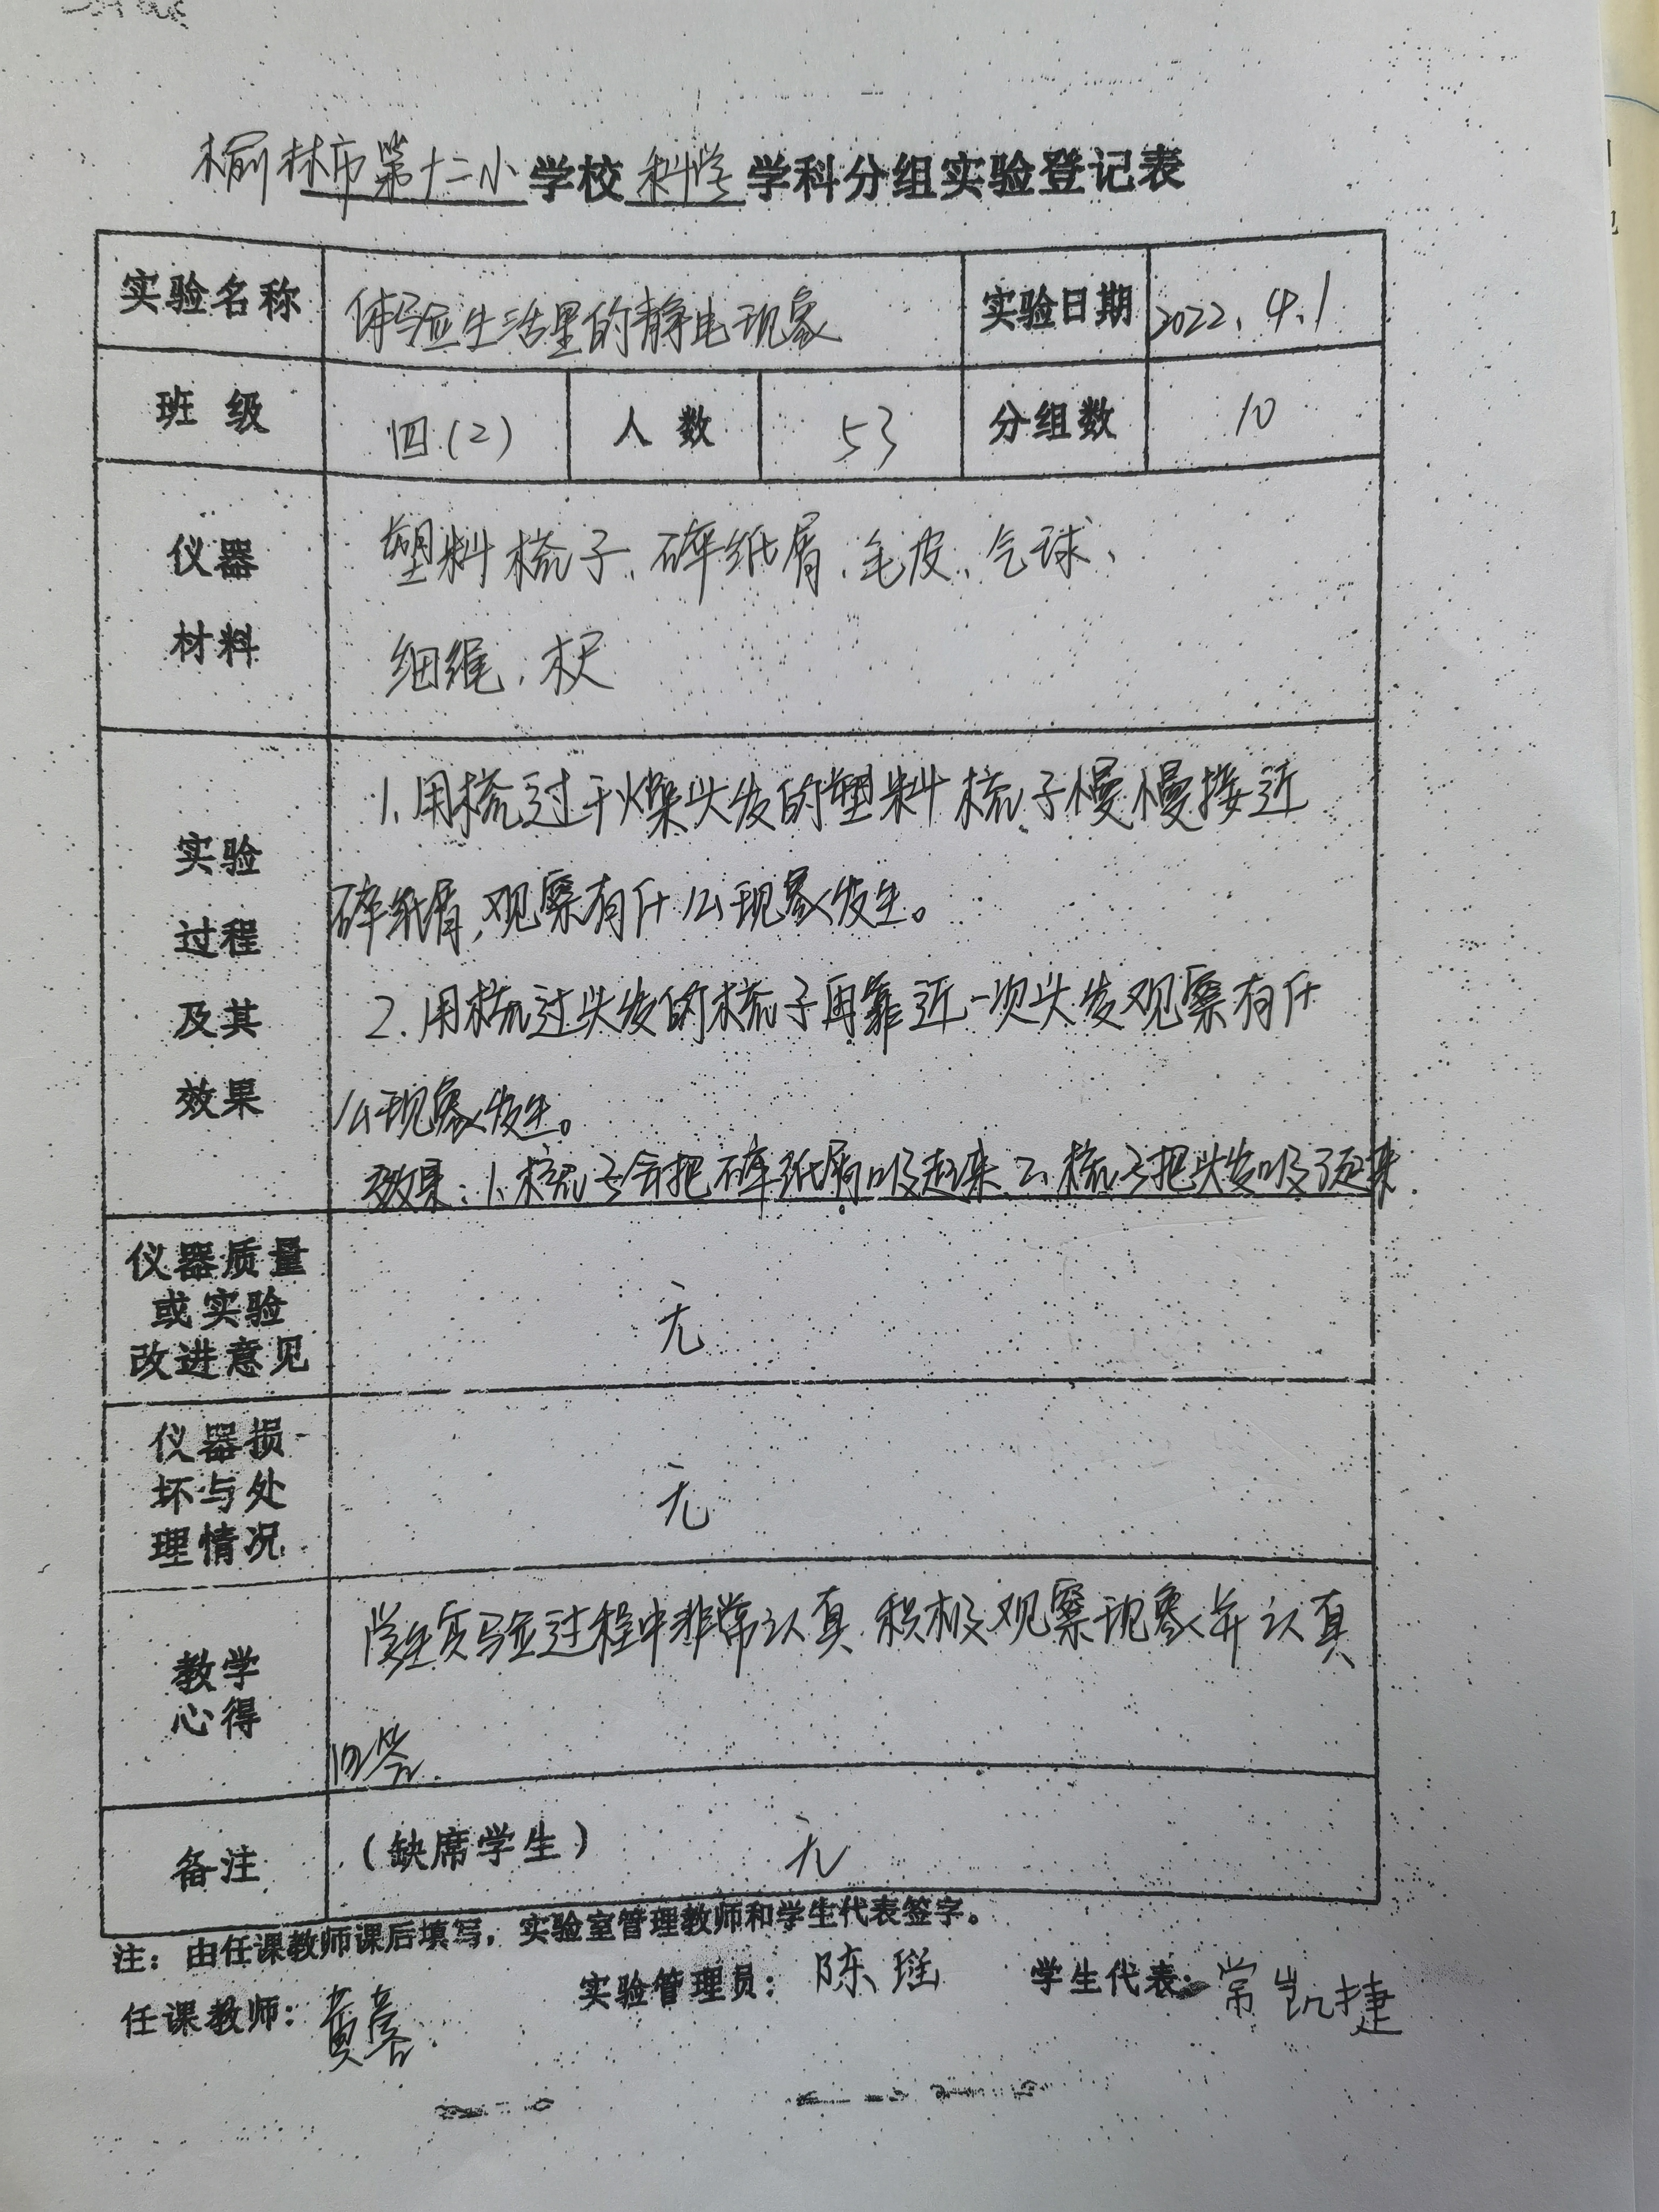 榆林市第十二小学校科学学科分组实验登记表
实验名称 体验生活里的静电现象 实验日期 2022.4.1
班级 四(2) 人数 53 分组数 10
仪器材料 塑料梳子、碎纸屑、毛皮、气球、
细绳、木尺
实验过程及其效果 1.用梳过干燥头发的塑料梳子慢慢接近
碎纸屑,观察有什么现象发生。
2.用梳过头发的梳子再靠近一次头发观察有什
么现象发生。
效果:1.梳子会把碎纸屑吸起来.2.梳子把头发吸了起来.
仪器质量
或实验
改进意见 无
仪器损
坏与处
理情况 无
教学心得 学生实验过程中非常认真.积极观察现象并认真
回答.
备注 (缺席学生) 无
注:由任课教师课后填写,实验室管理教师和学生代表签字。
任课教师:黄 实验管理员:陈瑶 学生代表:常凯捷